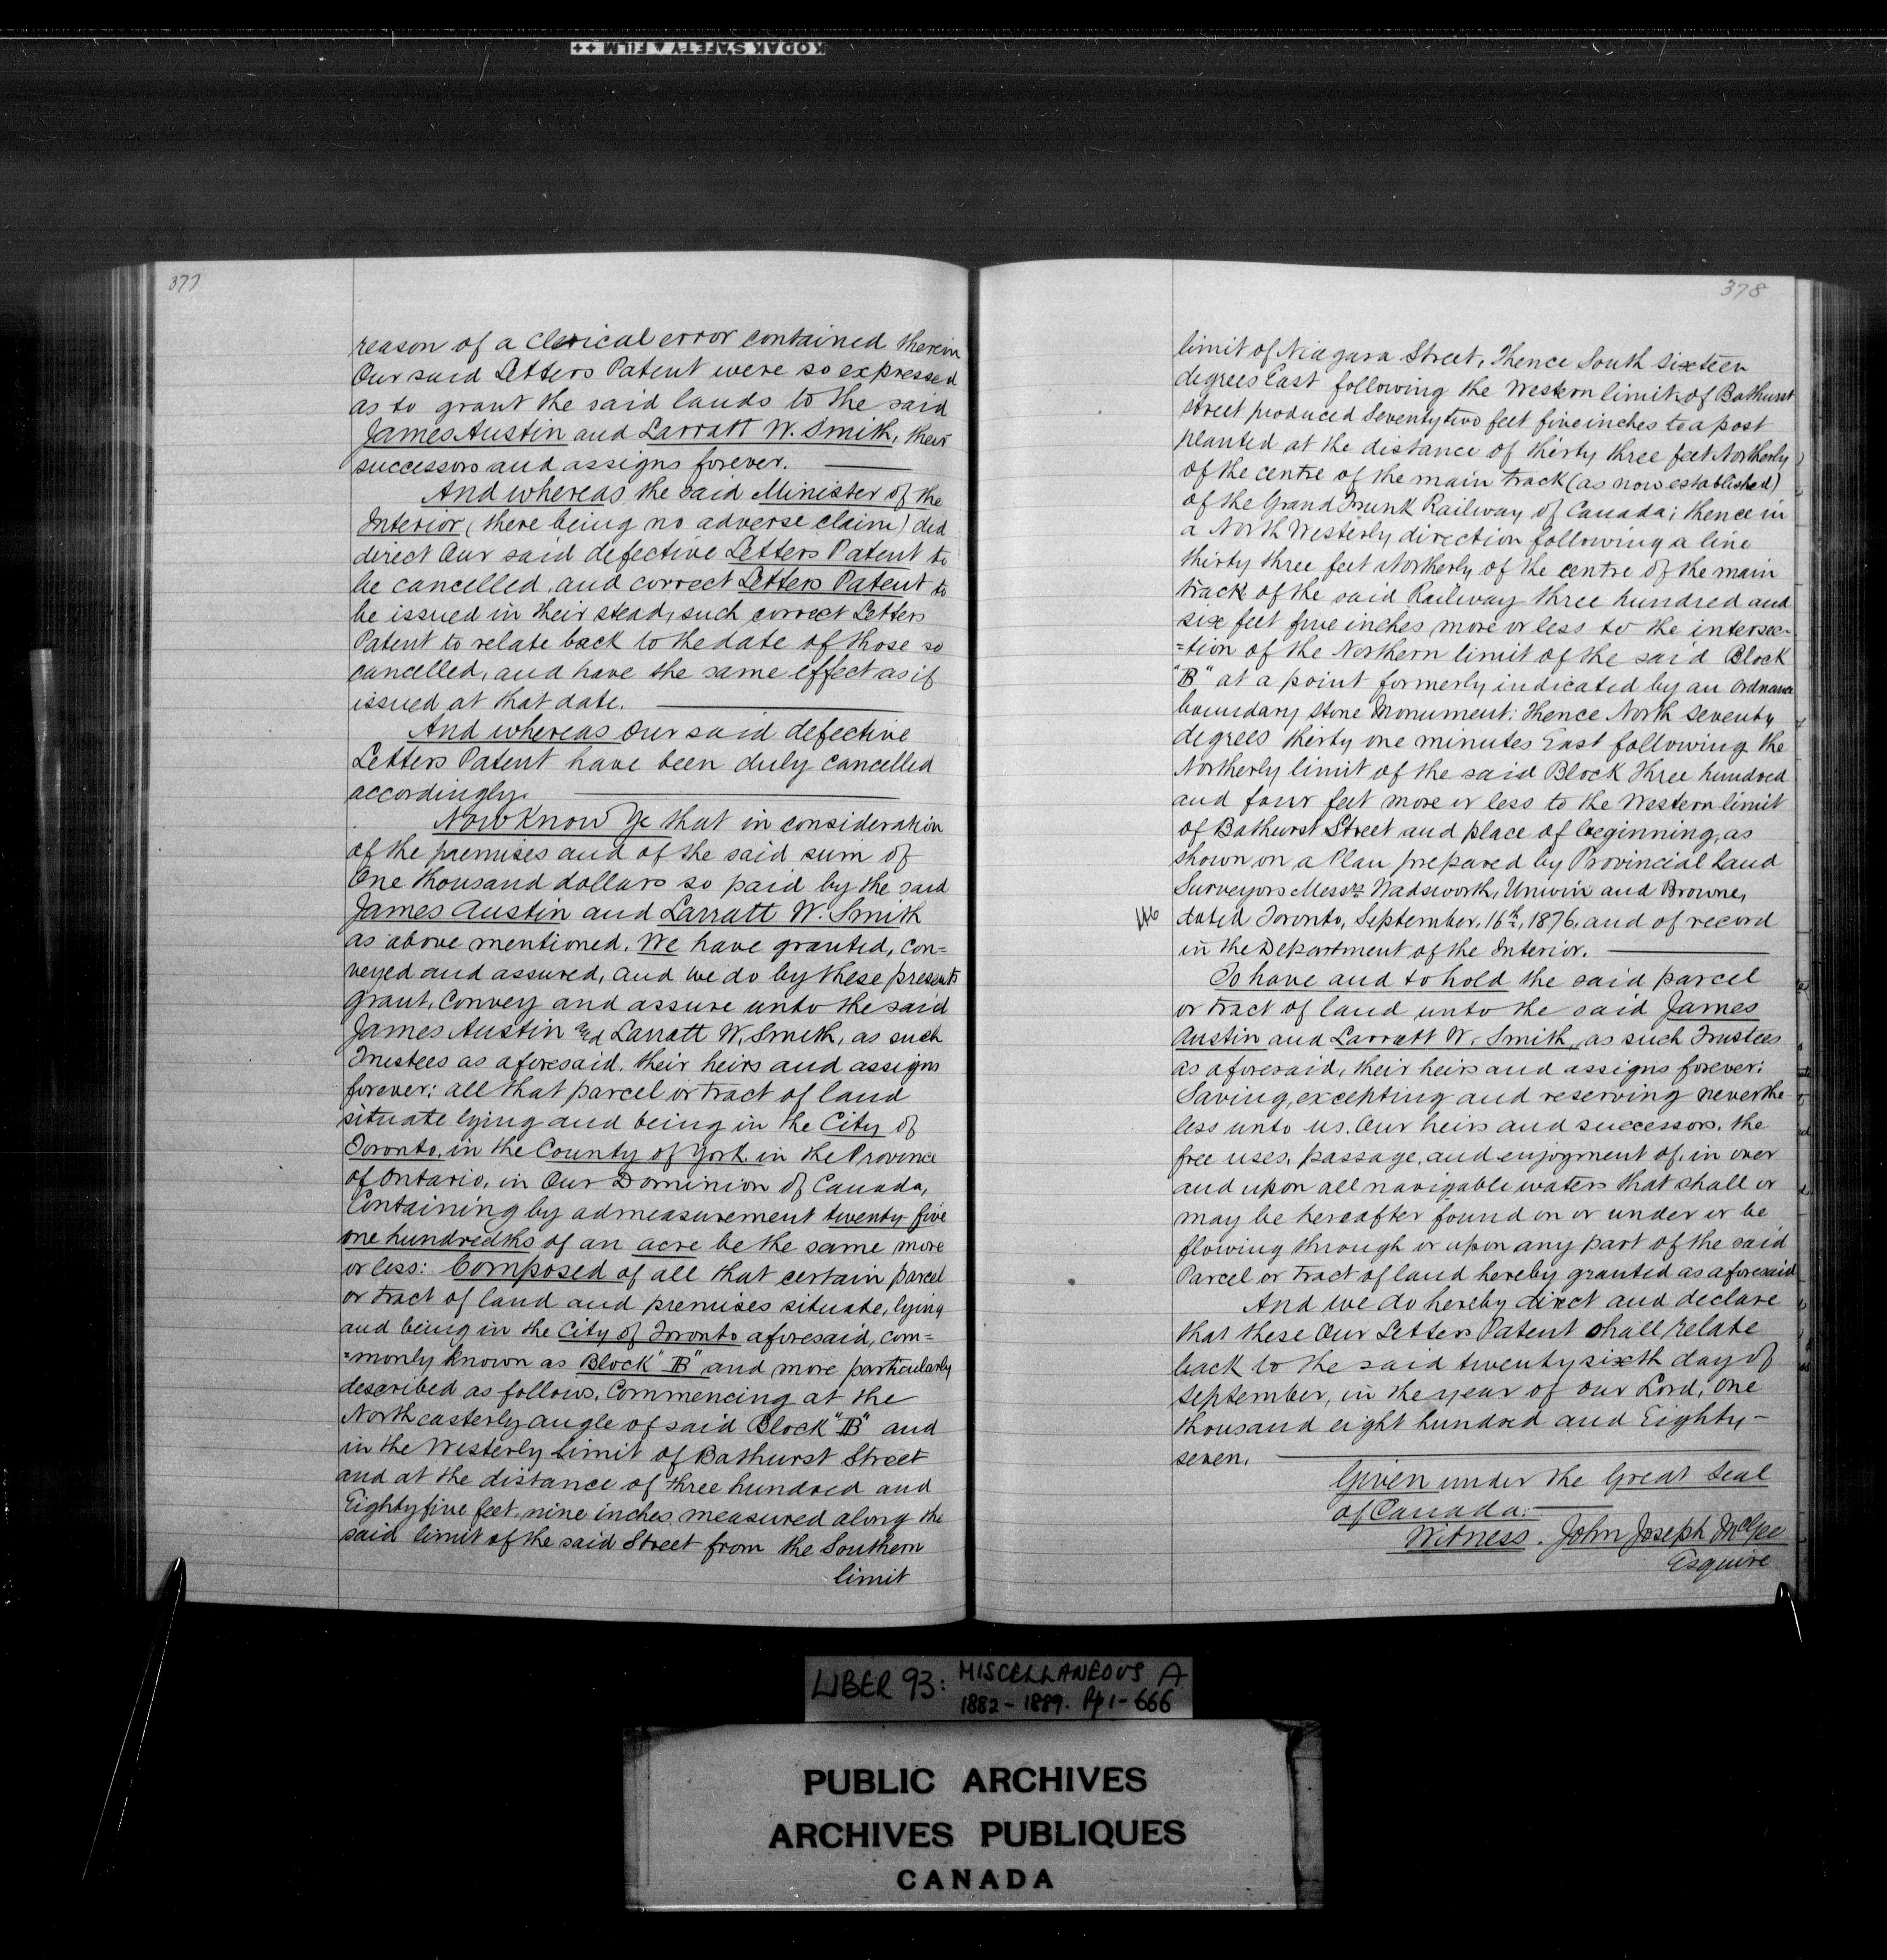 KODAK SAFETY ▲ FILM ++
377
reason of a Clerical error contained therein
Our said Letters Patent were so expressed
as to grant the said lands to the said
James Austin and Larratt W. Smith, their
successors and assigns forever.
And whereas the said Minister of the
Interior (there being no adverse claim) did
direct Our said defective Letters Patent to
be cancelled, and correct Letters Patent to
be issued in their stead, such correct Letters
Patent to relate back to the date of those so
cancelled, and have the same effect as if
issued at that date.
And whereas Our said defective
Letters Patent have been duly cancelled
accordingly.
Now Know Ye that in consideration
of the premises and of the said sum of
One thousand dollars so paid by the said
James Austin and Larratt W. Smith
as above mentioned. We have granted, con=
veyed and assured, and we do by these presents
grant, Convey and assure unto the said
James Austin and Larratt W. Smith, as such
Trustees as aforesaid, their heirs and assigns
forever: all that parcel or tract of land
situate lying and being in the City of
Toronto, in the County of York in the Province
of Ontario, in Our Dominion of Canada,
Containing by admeasurement twenty five
one hundredths of an acre be the same more
or less: Composed of all that certain parcel
or tract of land and premises situate, lying
and being in the City of Toronto aforesaid, com=
=monly known as Block "B" and more particularly
described as follows. Commencing at the
North easterly angle of said Block "B" and
in the Westerly limit of Bathurst Street
and at the distance of three hundred and
Eighty five feet, nine inches measured along the
said limit of the said Street from the Southern
limit
378
limit of Niagara Street, Thence South sixteen
degrees East following the Western limit of Bathurst
Street produced Seventy two feet five inches to a post
planted at the distance of thirty three feet Northerly
of the centre of the main track (as now established)
of the Grand Trunk Railway of Canada; thence in
a North Westerly direction following a line
thirty three feet Northerly of the centre of the main
track of the said Railway three hundred and
six feet five inches more or less to the intersec-
=tion of the Northern limit of the said Block
"B" at a point formerly indicated by an Ordnance
boundary stone Monument: Thence North seventy
degrees thirty one minutes East following the
Northerly limit of the said Block three hundred
and four feet more or less to the Western limit
of Bathurst Street and place of beginning, as
shown on a Plan prepared by Provincial Land
Surveyors Messrs Wadsworth, Unwin and Browne,
dated Toronto, September, 16th, 1876, and of record
in the Department of the Interior.
To have and to hold the said parcel
or tract of land unto the said James
Austin and Larratt W. Smith, as such Trustees
as aforesaid, their heirs and assigns forever:
Saving, excepting and reserving neverthe-
less unto us, Our heirs and successors, the
free uses, passage, and enjoyment of, in over
and upon all navigable waters that shall or
may be hereafter found on or under or be
flowing through or upon any part of the said
Parcel or tract of land hereby granted as aforesaid
And we do hereby direct and declare
that these Our Letters Patent shall relate
back to the said twenty sixth day of
September, in the year of Our Lord, One
thousand eight hundred and Eighty-
seven.
Given under the Great Seal
of Canada:
Witness. John Joseph McGee
Esquire
LIBER 93: MISCELLANEOUS A
1882-1889. Pp 1-666
PUBLIC ARCHIVES
ARCHIVES PUBLIQUES
CANADA